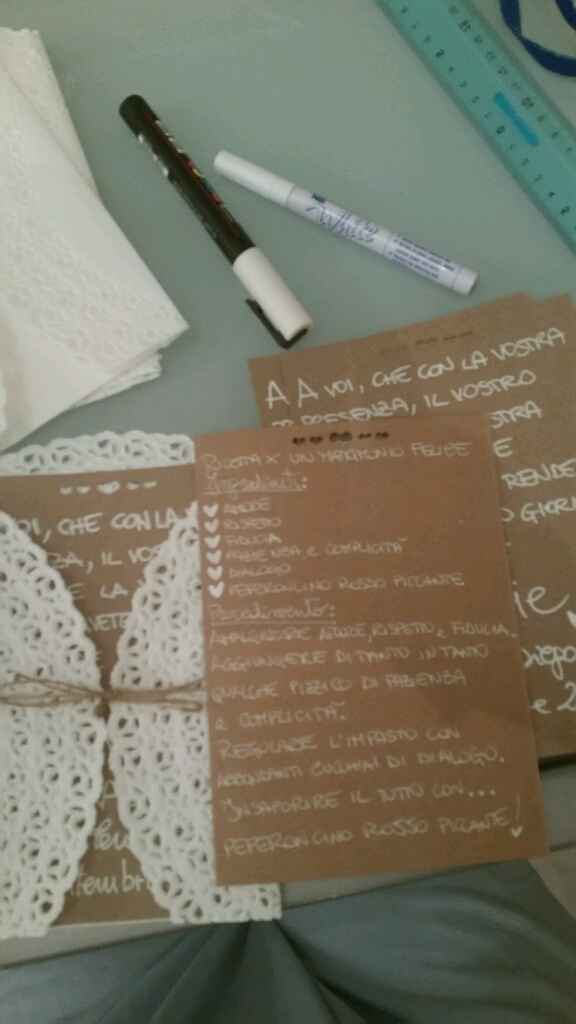 White
A A VOI, CHE CON LA VOSTRA
PRESENZA, IL VOSTRO
STRA
E
RENDE
O GIOR
ie
e 2
VOI, CHE CON LA
ZA, IL VOS
E LA
VETE
tembr
RICETTA X UN MATRIMONIO FELICE
Ingredienti:
AMORE
RISPETTO
FIDUCIA
PAZIENZA E COMPLICITÀ
DIALOGO
PEPERONCINO ROSSO PICCANTE
Procedimento:
AMALGAMARE AMORE, RISPETTO E FIDUCIA.
AGGIUNGERE DI TANTO IN TANTO
QUALCHE PIZZICO DI PAZIENZA
E COMPLICITÀ.
REGOLARE L'IMPASTO CON
ABBONDANTI CUCCHIAI DI DIALOGO.
INSAPORIRE IL TUTTO CON...
PEPERONCINO ROSSO PICCANTE!